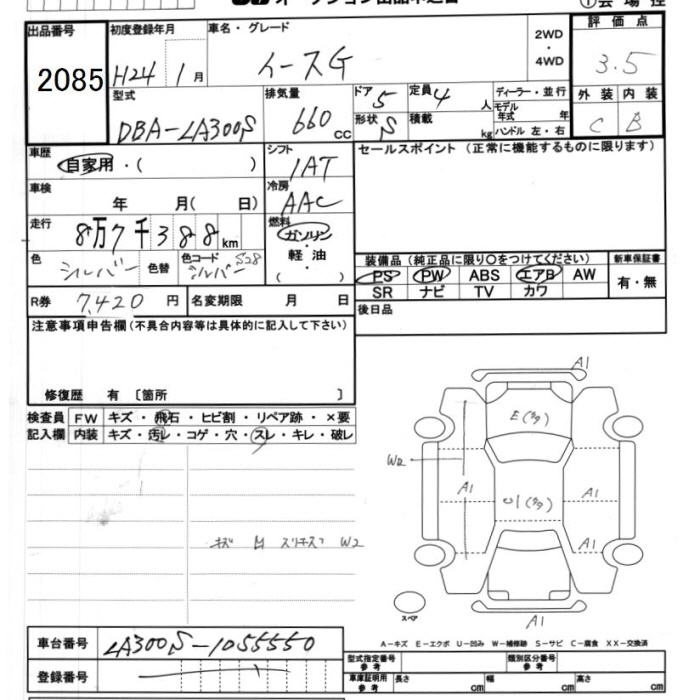 出品番号 初度登録年月 車名・グレード 2WD・4WD 評価点
2085 H24 1月 イースG 3.5
型式 排気量 ドア 5 定員 4 人 ディーラー・並行 外装 内装
DBA-LA300S 660 cc 形状 S 積載 kg モデル年式 年 ハンドル 左・右 C B
車歴 シフト セールスポイント (正常に機能するものに限ります)
自家用・( ) IAT
車検 冷房
年 月( 日) AAC
走行 燃料
8万7千388km ガソリン・軽油・( )
色 シルバー 色替 色コード シルバー S28
装備品 (純正品に限り○をつけてください) 新車保証書
PS PW ABS エアB AW 有・無
SR ナビ TV カワ
R券 7,420 円 名変期限 月 日
後日品
注意事項申告欄(不具合内容等は具体的に記入して下さい)
修復歴 有 〔箇所 〕
検査員 FW キズ・飛石・ヒビ割・リペア跡・×要
記入欄 内装 キズ・汚レ・コゲ・穴・スレ・キレ・破レ
A1
E(タタ)
W2
A1
U1(タタ)
A1
A1
A1
キズ W2
スペア
A-キズ E-エクボ U-凹み W-補修跡 S-サビ C-腐食 XX-交換済
車台番号 LA300S-1055550
登録番号
型式指定番号 参考 類別区分番号 参考
車庫証明用 参考 長さ cm 幅 cm 高さ cm